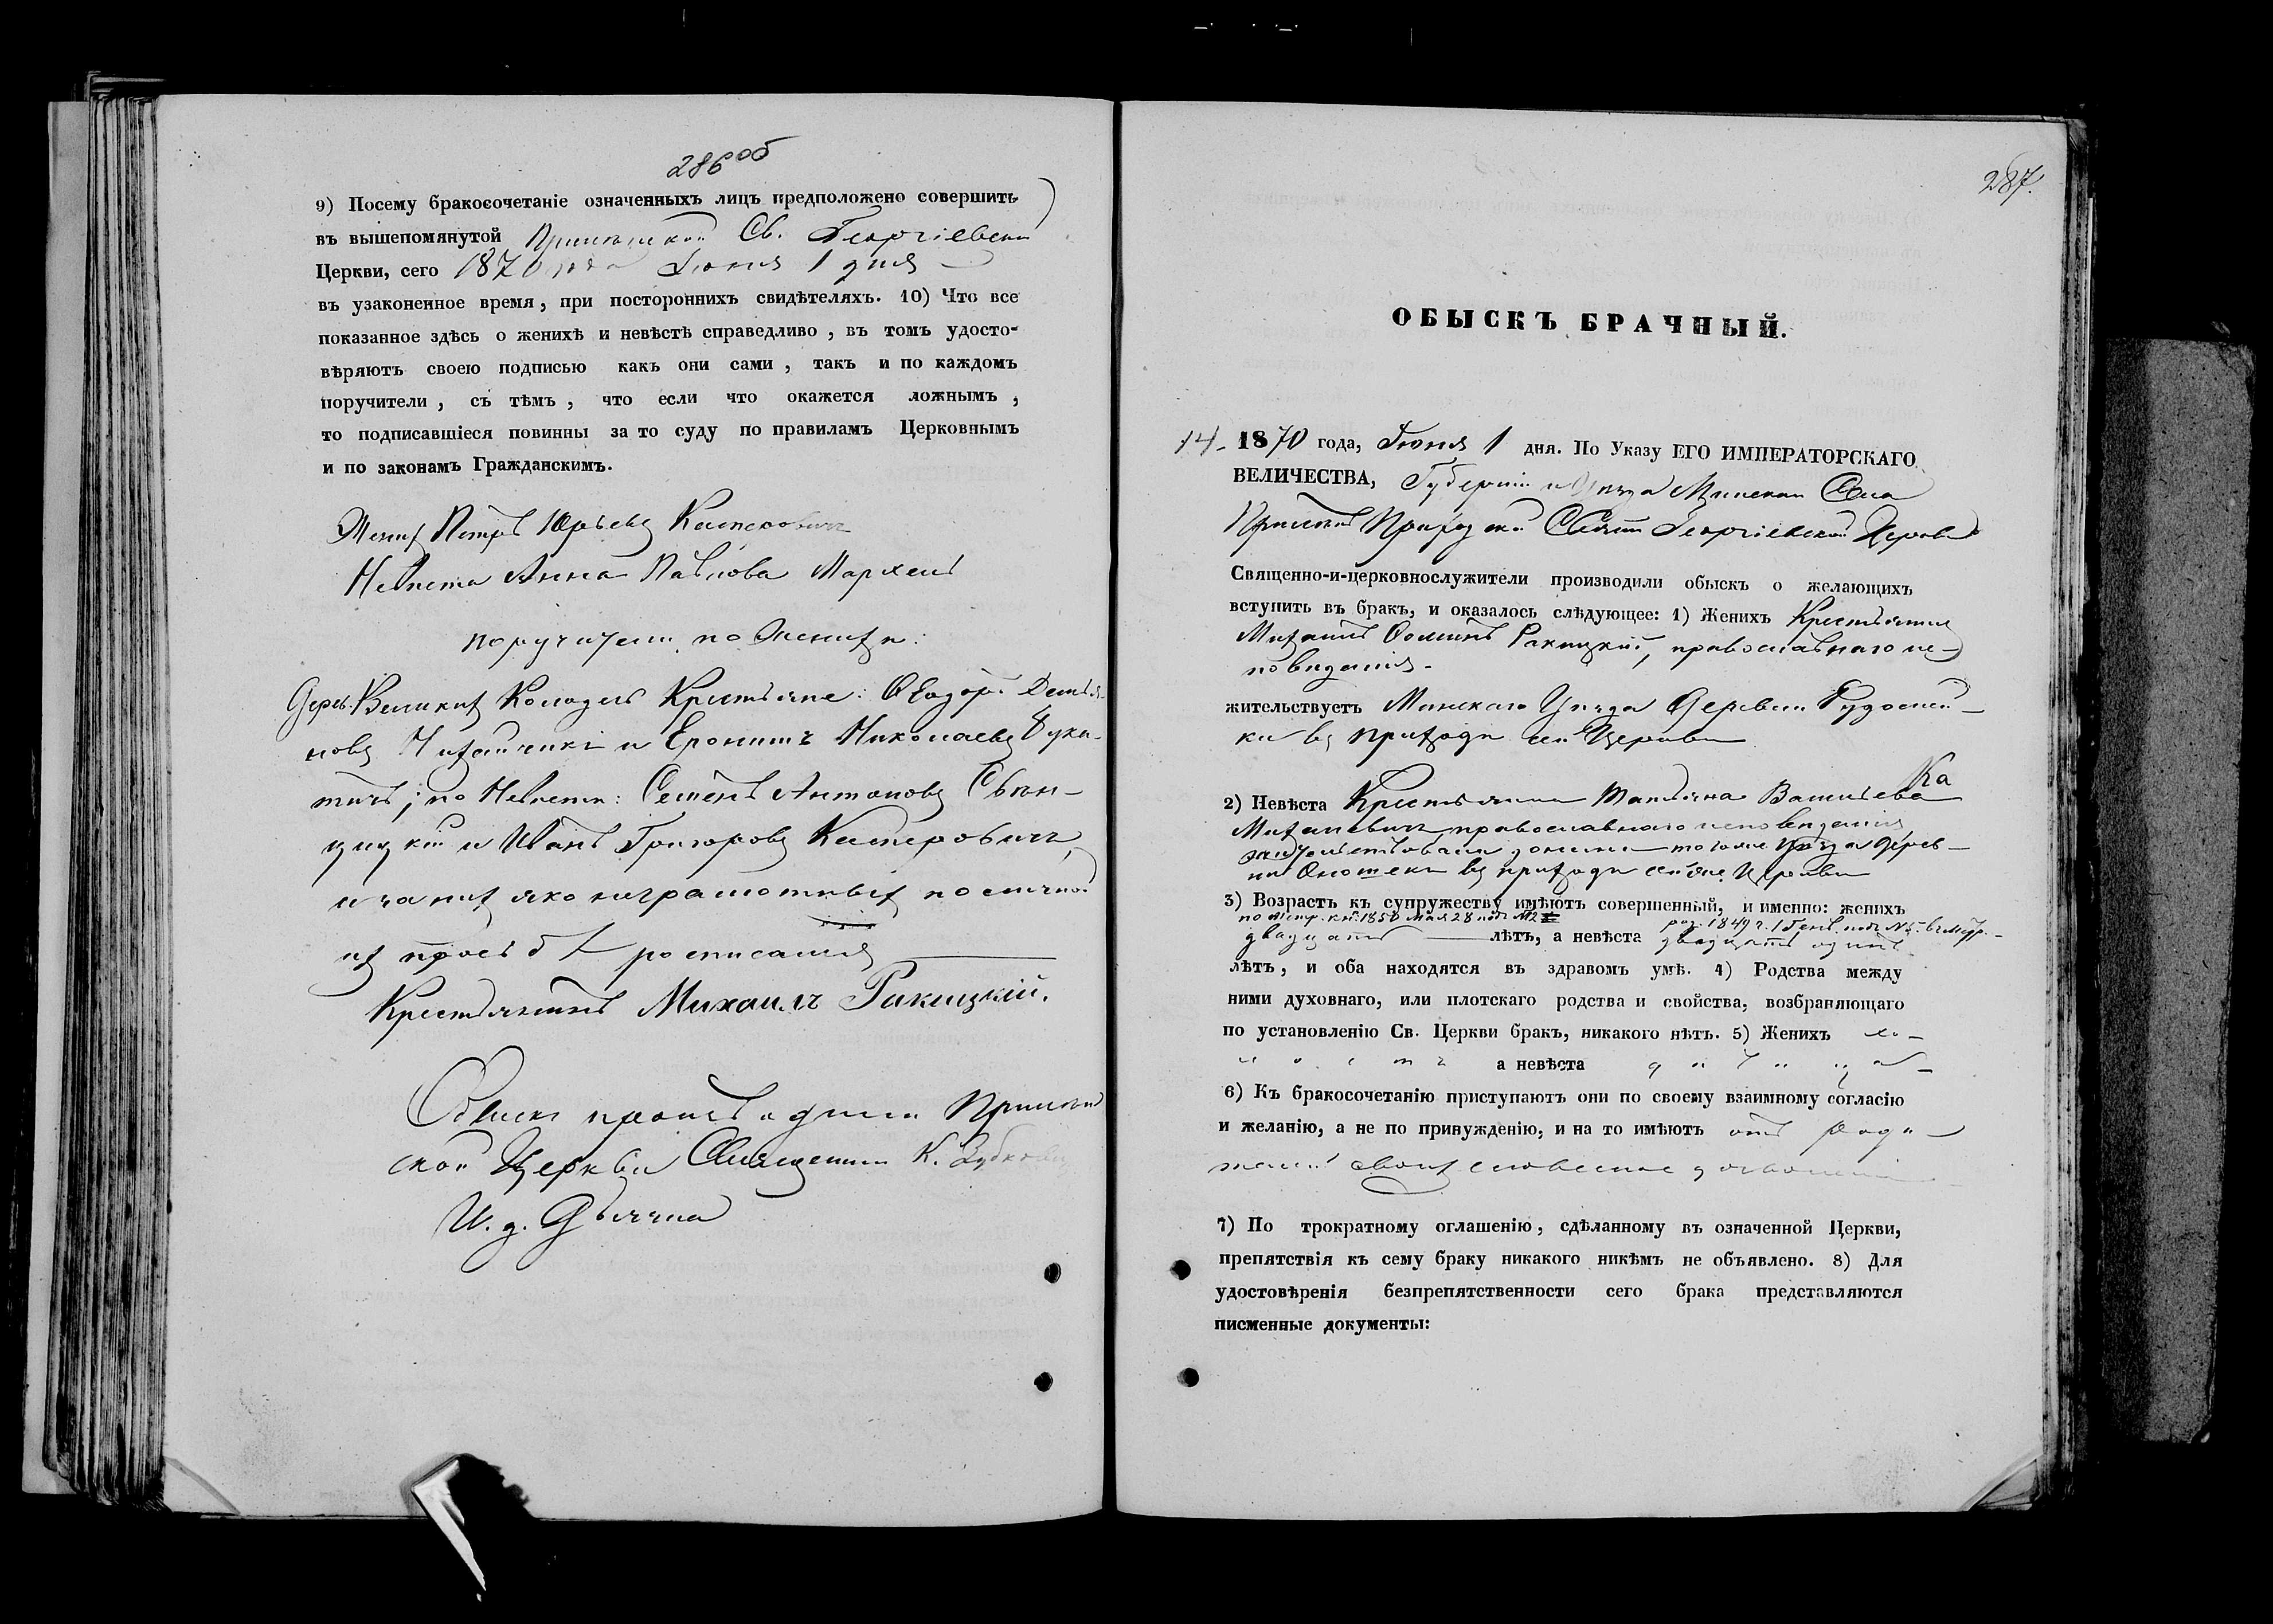 286 об
9) Посему бракосочетаніе означенныхъ лицъ предположено совершить
въ вышепомянутой Св. Георгіевской
Церкви, сего 1870 года Іюня 1 дня
въ узаконенное время, при постороннихъ свидѣтеляхъ. 10) Что все
показанное здѣсь о женихѣ и невѣстѣ справедливо, въ томъ удосто-
вѣряютъ своею подписью какъ они сами, такъ и по каждомъ
поручители, съ тѣмъ, что если что окажется ложнымъ,
то подписавшіеся повинны за то суду по правиламъ Церковнымъ
и по законамъ Гражданскимъ.
Женихъ Петръ Юрьевъ
Невѣста Анна Павлова Мархель
поручители по Женихѣ:
Дерев. Великихъ Колодезь Крестьяне: Ѳеодоръ Демья-
новъ и Николаевъ
по Невѣстѣ: Семенъ Антоновъ
и Иванъ Григоровъ
и за нихъ яко неграмотныхъ по личной
ихъ просьбѣ росписался
Крестьянинъ Михаилъ Ракицкій.
Обыскъ производили
ской Церкви Священникъ К.
И. д. Дьячка
287.
ОБЫСКЪ БРАЧНЫЙ.
14. 1870 года, Іюня 1 дня. По Указу ЕГО ИМПЕРАТОРСКАГО
ВЕЛИЧЕСТВА, Губерніи и Уѣзда Минскаго Села
Приходской Свято Георгіевской Церкви
Священно-и-церковнослужители производили обыскъ о желающихъ
вступить въ бракъ, и оказалось слѣдующее: 1) Женихъ Крестьянинъ
Михаилъ Ѳоминъ Ракицкій, православнаго ис-
повѣданія.
жительствуетъ Минскаго Уѣзда Деревни
ки въ приходѣ сей Церкви
2) Невѣста Крестьянка Татьяна Васильева
православнаго исповѣданія
жительствовала донынѣ того же Уѣзда дерев-
ни въ приходѣ сей же Церкви
3) Возрастъ къ супружеству имѣютъ совершенный, и именно: женихъ
по метр. кн. 1850 мая 28 подъ № 12 род. 1849 г. подъ № 5.
двадцать лѣтъ, а невѣста двадцать одинъ
лѣтъ, и оба находятся въ здравомъ умѣ. 4) Родства между
ними духовнаго, или плотскаго родства и свойства, возбраняющаго
по установленію Св. Церкви бракъ, никакого нѣтъ. 5) Женихъ хо-
лостъ а невѣста дѣвица
6) Къ бракосочетанію приступаютъ они по своему взаимному согласію
и желанію, а не по принужденію, и на то имѣютъ отъ роди-
телей своихъ словесное дозволеніе
7) По трократному оглашенію, сдѣланному въ означенной Церкви,
препятствія къ сему браку никакого никѣмъ не объявлено. 8) Для
удостовѣренія безпрепятственности сего брака представляются
писменные документы: